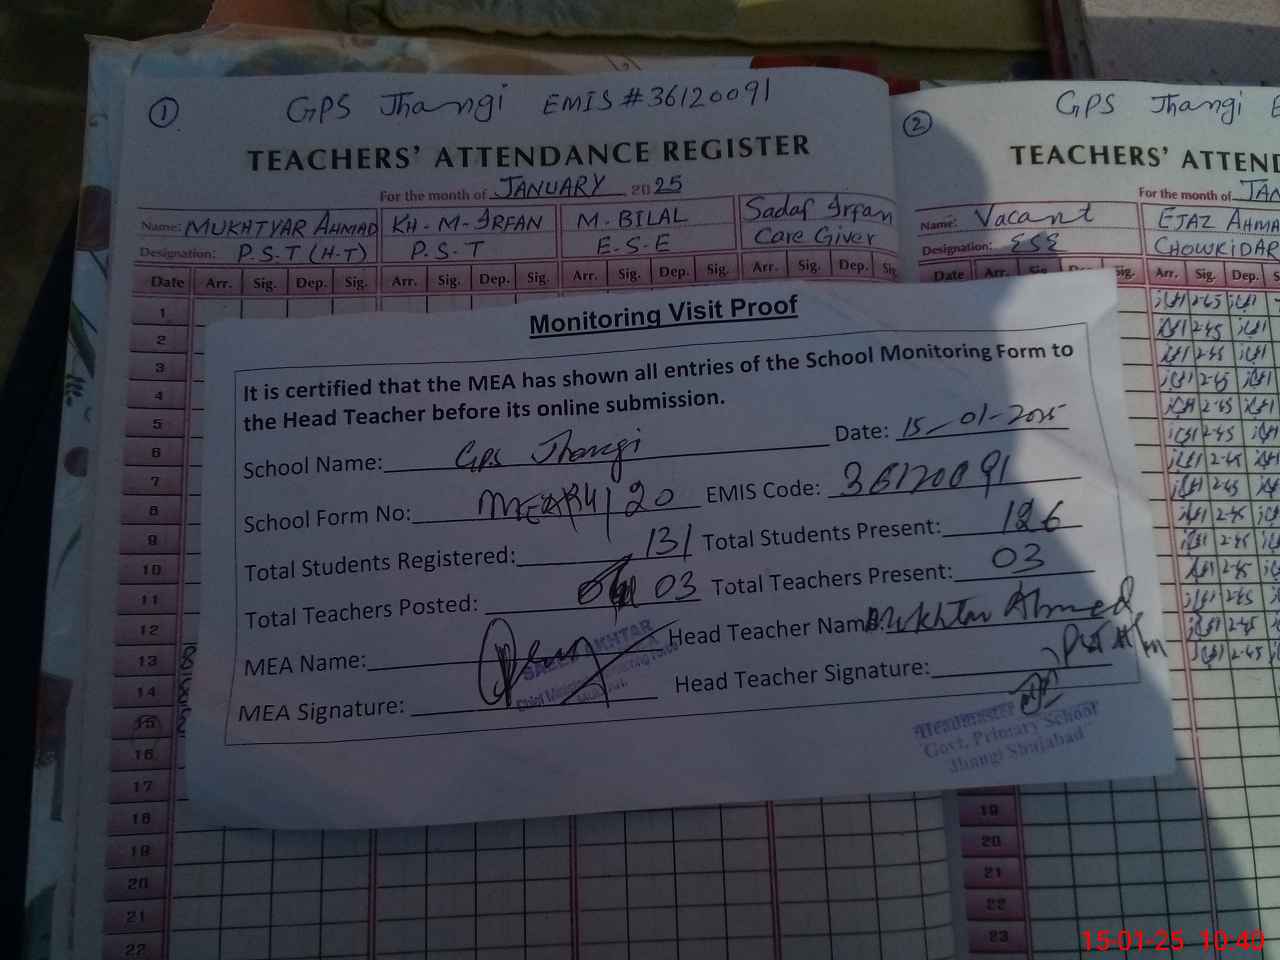 ① GPS Jhangi EMIS #36120091
TEACHERS' ATTENDANCE REGISTER
For the month of JANUARY 2025
Name: MUKHTYAR AHMAD KH-M-IRFAN M-BILAL Sadaf Irfan
Designation: P.S.T (H-T) P.S.T E.S.E Care Giver
Date Arr. Sig. Dep. Sig. Arr. Sig. Dep. Sig. Arr. Sig. Dep. Sig. Arr. Sig. Dep. Sig
1
2
3
4
5
6
7
8
9
10
11
12
13
14
15
16
17
18
19
20
21
22
Monitoring Visit Proof
It is certified that the MEA has shown all entries of the School Monitoring Form to
the Head Teacher before its online submission.
School Name: GPS Jhangi Date: 15-01-2025
School Form No: EMIS Code: 36120091
Total Students Registered: 131 Total Students Present: 126
Total Teachers Posted: 03 Total Teachers Present: 03
MEA Name: Head Teacher Name: Mukhtar Ahmed
MEA Signature: Head Teacher Signature:
Headmaster
Govt. Primary School
Jhangi Shujabad
② GPS Jhangi E
TEACHERS' ATTEND
For the month of JAN
Name: Vacant EJAZ AHMA
Designation: ESE CHOWKIDAR
Date Arr. Sig. Dep. Sig. Arr. Sig. Dep. S
19
20
21
22
23
15-01-25 10:40